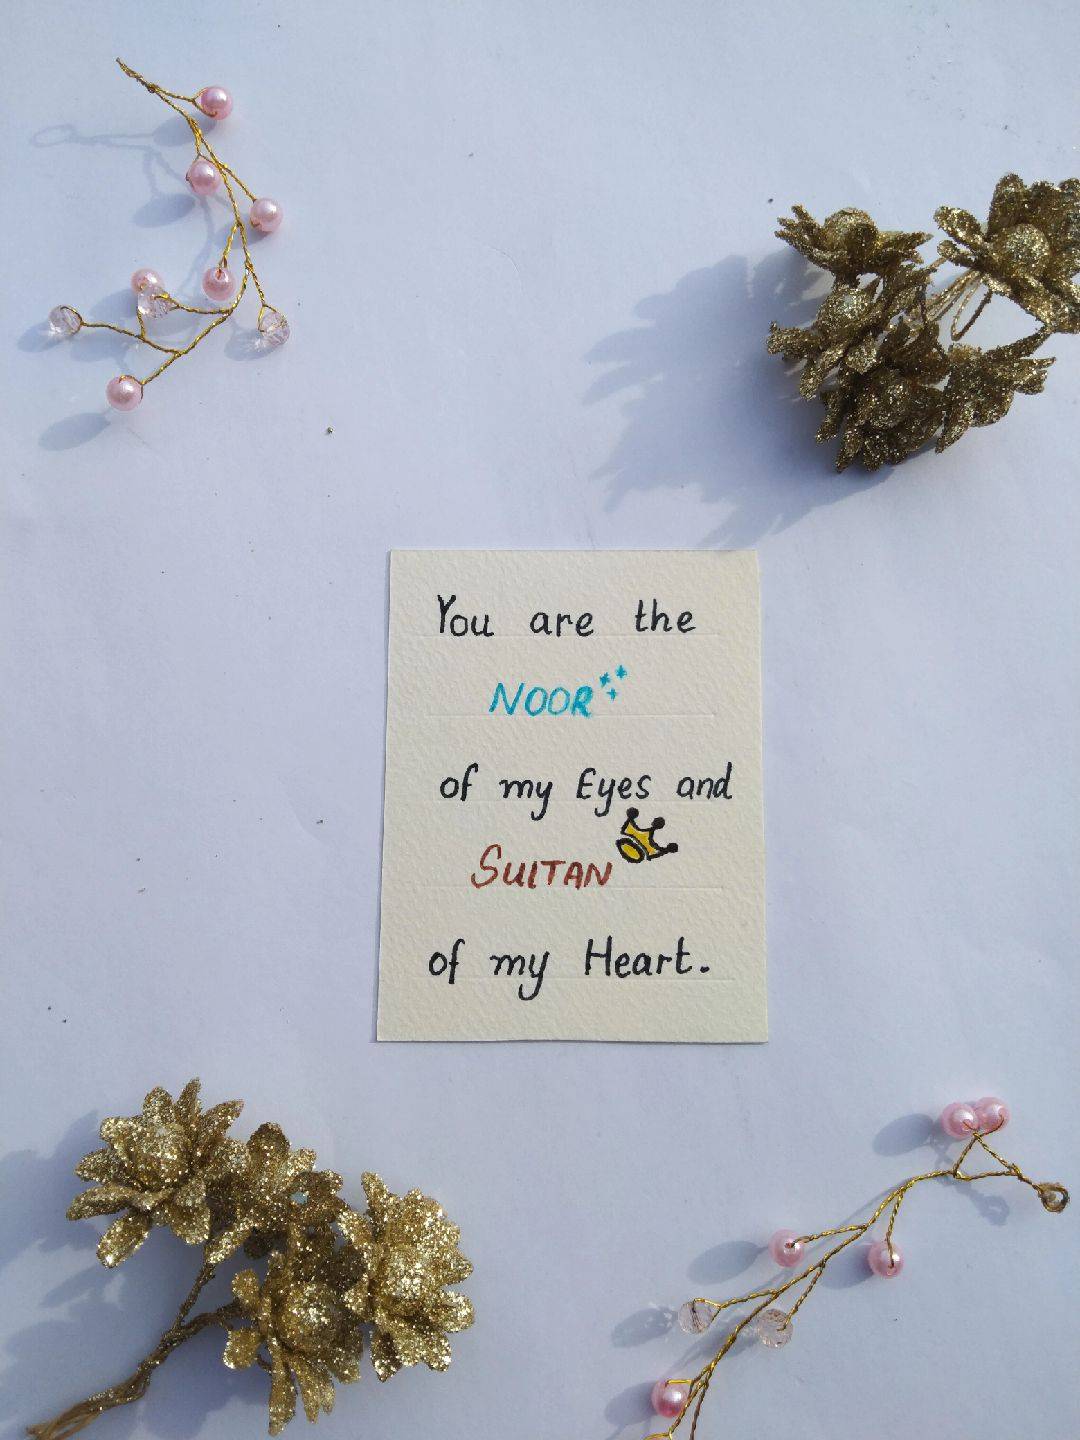 You are the
NOOR
of my Eyes and
SULTAN
of my Heart.